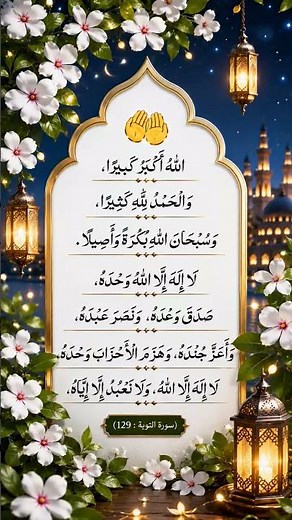 اللهُ أَكْبَرُ كَبِيرًا،
وَالْحَمْدُ لِلَّهِ كَثِيرًا،
وَسُبْحَانَ اللهِ بُكْرَةً وَأَصِيلًا.
لَا إِلَهَ إِلَّا اللهُ وَحْدَهُ،
صَدَقَ وَعْدَهُ، وَنَصَرَ عَبْدَهُ،
وَأَعَزَّ جُنْدَهُ، وَهَزَمَ الْأَحْزَابَ وَحْدَهُ،
لَا إِلَهَ إِلَّا اللهُ، وَلَا نَعْبُدُ إِلَّا إِيَّاهُ،
(سورة التوبة : 129)